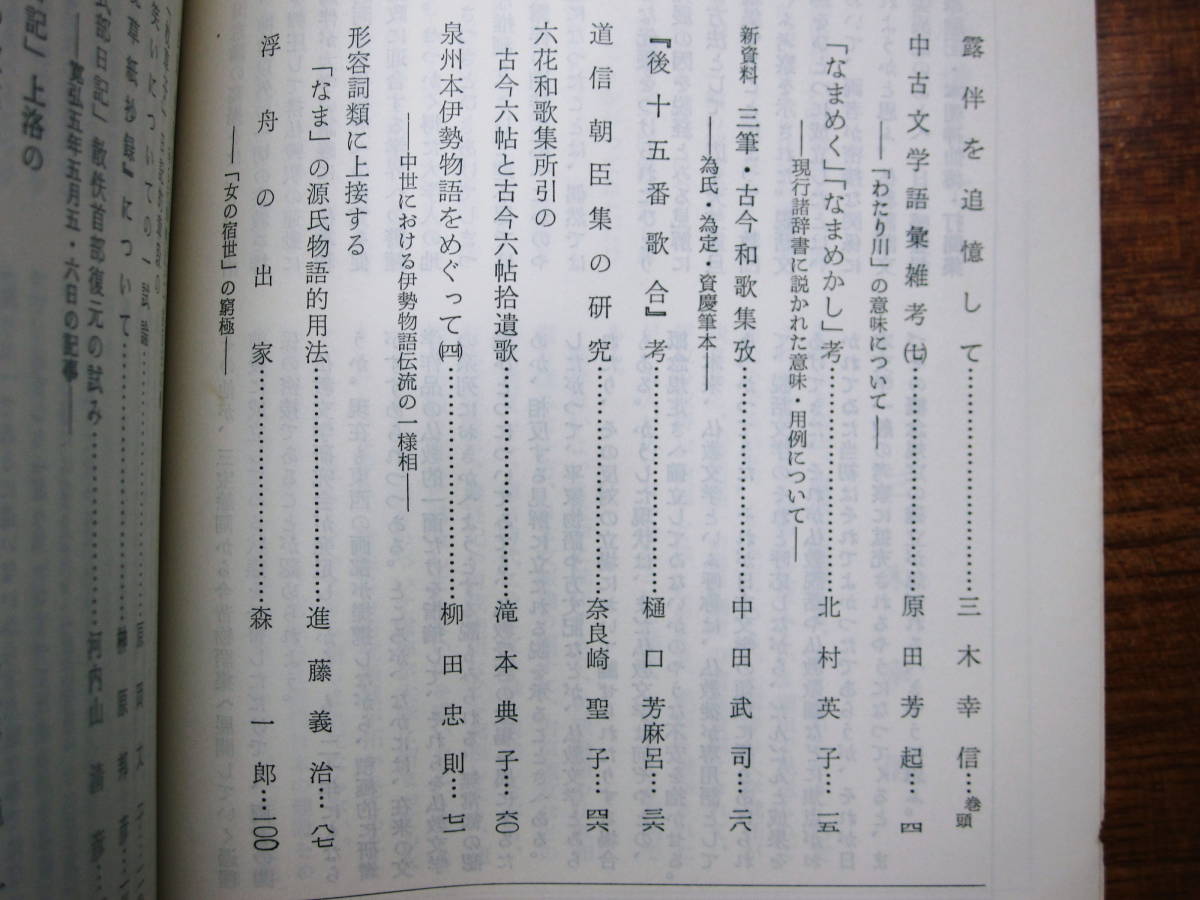 露伴を追憶して……………………三木幸信…巻頭
中古文学語彙雑考㈦………………原田芳起…四
――「わたり川」の意味について――
「なまめく」「なまめかし」考………………北村英子…一五
――現行諸辞書に説かれた意味・用例について――
新資料 三筆・古今和歌集攷………………中田武司…二八
――為氏・為定・資慶筆本――
『後十五番歌合』考………………樋口芳麻呂…三六
道信朝臣集の研究………………奈良崎聖子…四六
六花和歌集所引の
古今六帖と古今六帖拾遺歌………………滝本典子…六〇
泉州本伊勢物語をめぐって㈣………………柳田忠則…七二
――中世における伊勢物語伝流の一様相――
形容詞類に上接する
「なま」の源氏物語的用法………………進藤義治…八七
浮舟の出家………………森一郎…一〇〇
――「女の宿世」の窮極――
笑いについての一試論………………
草紙抄録』について………………榊原邦彦
式部日記」散佚首部復元の試み………………河内山清彦
――寛弘五年五月五・六日の記事――
記」上落の